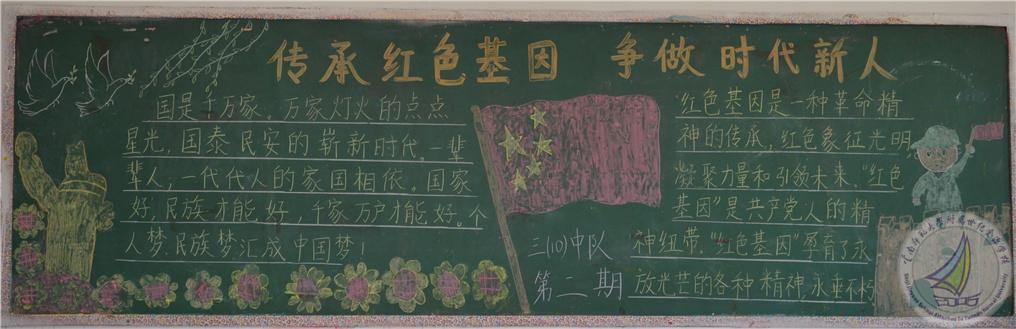 传承红色基因 争做时代新人
国是千万家。万家灯火的点点
星光,国泰民安的崭新时代。一辈
辈人,一代代人的家国相依。国家
好,民族才能好,千家万户才能好。个
人梦、民族梦汇成中国梦!
红色基因是一种革命精
神的传承,红色象征光明,
凝聚力量和引领未来。“红色
基因”是共产党人的精
神纽带,“红色基因”孕育了永
放光芒的各种精神,永垂不朽
三(10)中队
第二期